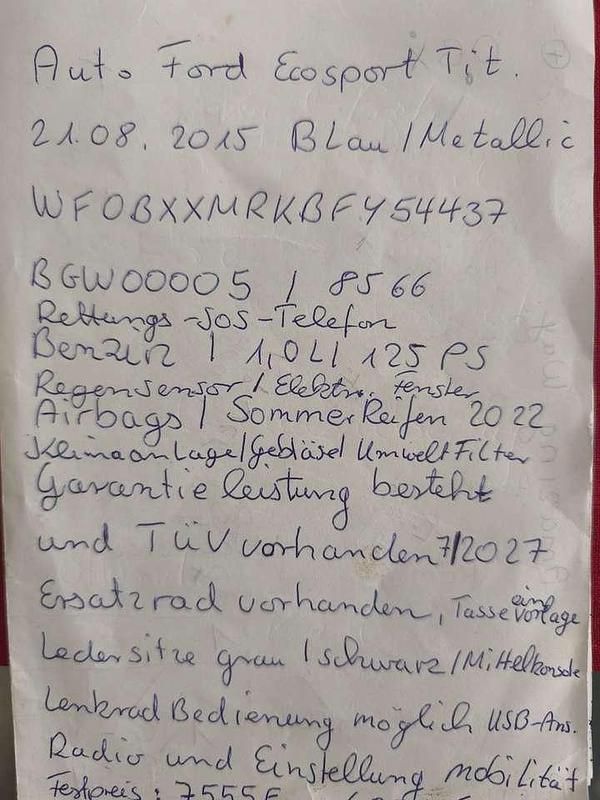 Auto Ford Ecosport Tit.
21.08.2015 Blau / Metallic
WF0BXXMRKBFY54437
BGW00005 / 8566
Rettungs-SOS-Telefon
Benzin / 1,0L / 125 PS
Regensensor / Elektr. Fenster
Airbags / SommerReifen 2022
Klimaanlage/Gebläse/ UmweltFilter
Garantieleistung besteht
und TÜV vorhanden 7/2027
Ersatzrad vorhanden, Tasse einvorlage
Ledersitze grau / schwarz / Mittelkonsole
Lenkrad Bedienung möglich USB-Ans.
Radio und Einstellung mobilität
Festpreis: 7555€